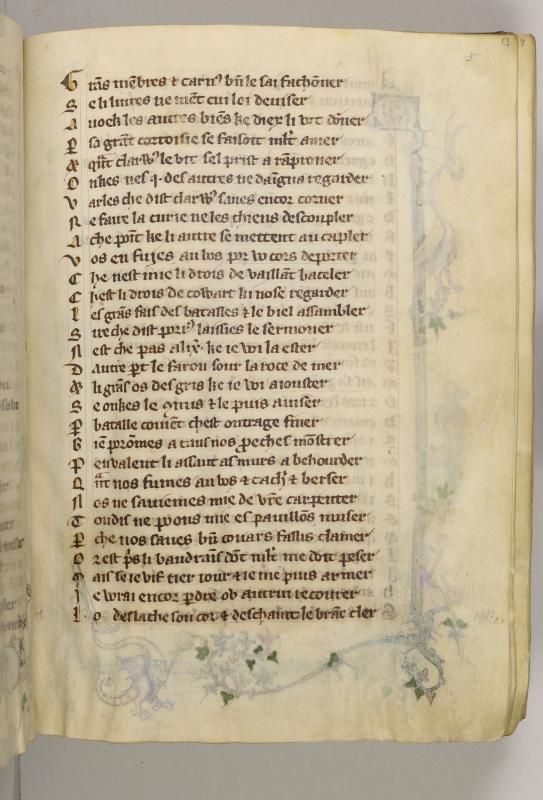 13 7
G rās mēbres ⁊ carnꝰ bn̄ le sai fachōner
S e li liures ne mēt cui loi deuiser
A uoek les autres biēs ke diex li vt dōner
P so grāt cortoisie se faisoit ml̄t amer
⁊ qn̄t clarꝰ le vit sel prist a rāproner
O nkes nes .j. des autres ne daīgna regarder
V arles che dist clarꝰ saues encor corner
N e faire la curie ne les chiens descoupler
A che pōit ke li autre se mettent au capler
V os en fuies au bos por vo cors deporter
C he nest mie li drois de vaillāt baceler
C hest li drois de cowart ki nose regarder
L es grās fais des batailles ⁊ le biel assambler
S ire che dist porrꝰ laissies le sermoner
N est che pas alix̄ ke ie voi la ester
D autre pt le farou sour la roce de mer
⁊ li grās os des gris ke ie voi aiouster
S e onkes le ⁊ le puis auiser
P bataille couiēt chest outrage finer
B iē prōmes a tous nos peches mōstrer
P endalent li assaut as murs a behourder
Q n̄t nos fumes au bos ⁊ cachꝰ ⁊ berser
N os ne sauiemes mie de vr̄e carpenter
T oudis ne poons mie es pauillōs muser
P che nos saues bn̄ couars faillis clamer
O r est pˢ li baudrais dōt ml̄t me doit peser
M ais se ie vif tier iour ⁊ ie me puis armer
J e wrai encor pdre ob autrui recourer
L o deslache son cor ⁊ deschaint le brāc cler